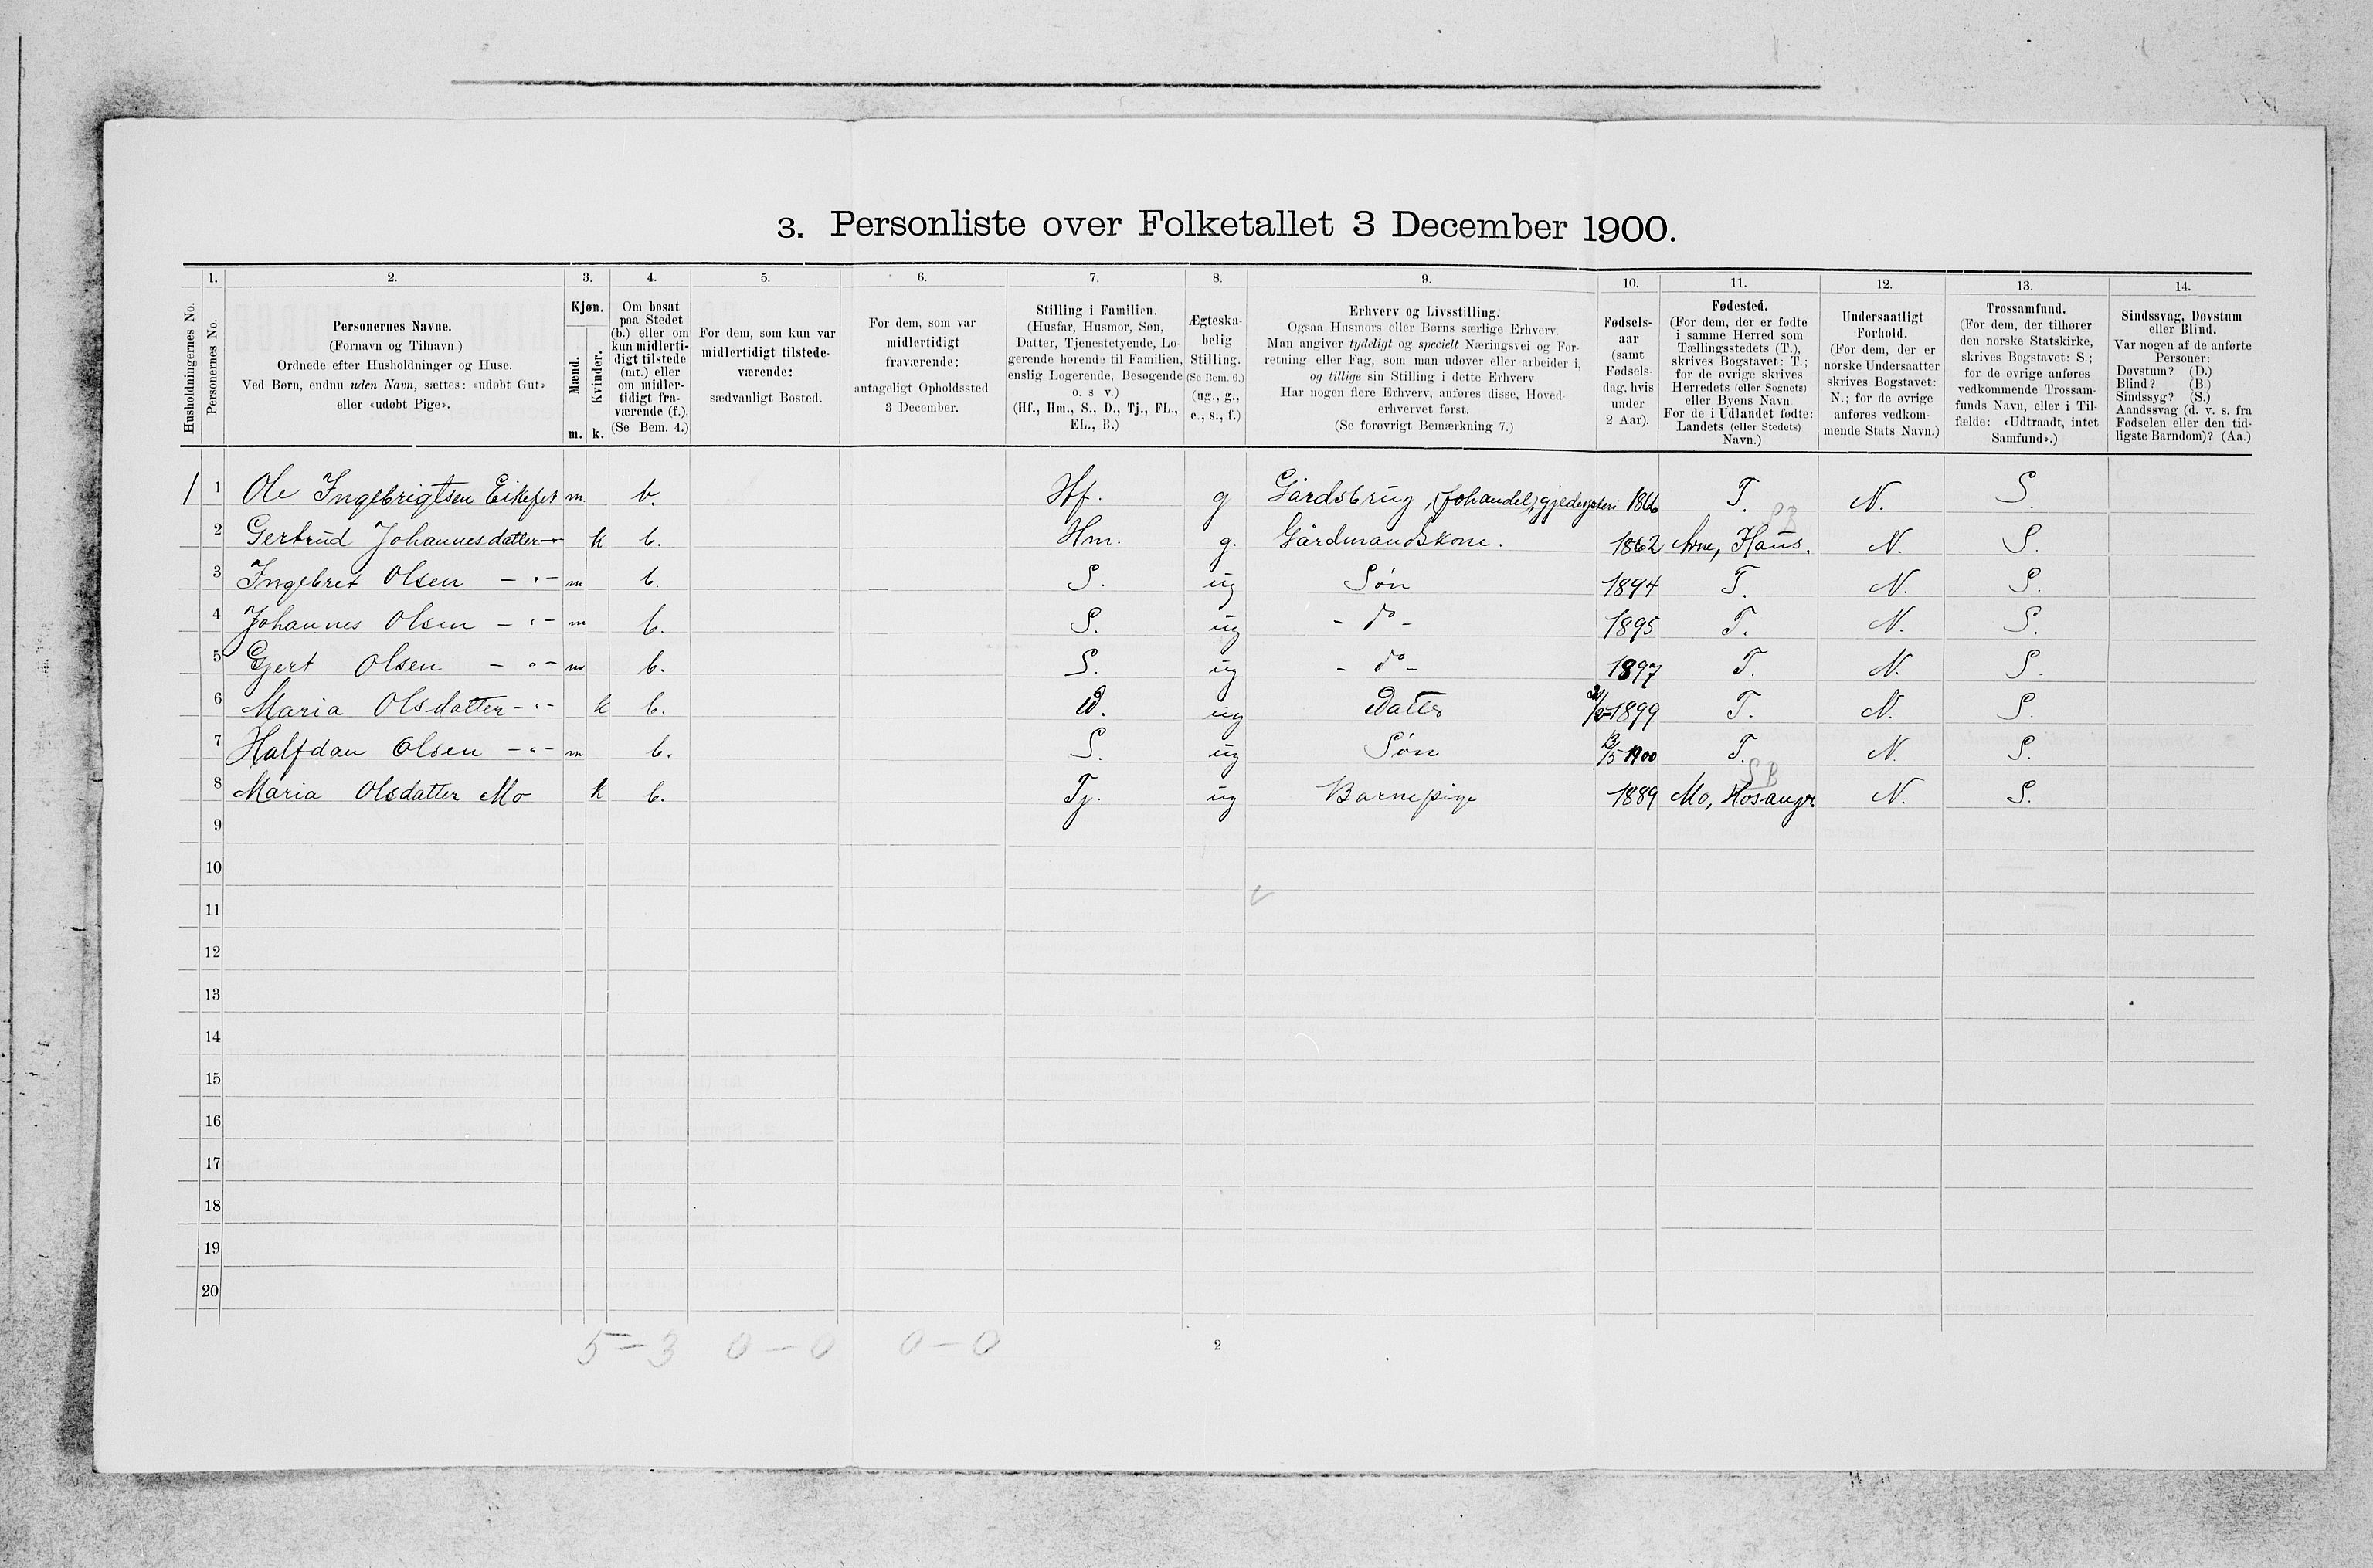 3. Personliste over Folketallet 3 December 1900.
1. 2. 3. 4. 5. 6. 7. 8. 9. 10. 11. 12. 13. 14.
Husholdningernes No.
Personernes No.
Personernes Navne.
(Fornavn og Tilnavn)
Ordnede efter Husholdninger og Huse.
Ved Børn, endnu uden Navn, sættes: «udøbt Gut»
eller «udøbt Pige».
Kjøn.
Mænd.
Kvinder.
m. k.
Om bosat
paa Stedet
(b.) eller om
kun midlerti-
digt tilstede
(mt.) eller
om midler-
tidigt fra-
værende (f.).
(Se Bem. 4.)
For dem, som kun var
midlertidigt tilstede-
værende:
sædvanligt Bosted.
For dem, som var
midlertidigt
fraværende:
antageligt Opholdssted
3 December.
Stilling i Familien.
(Husfar, Husmor, Søn,
Datter, Tjenestetyende, Lo-
gerende hørende til Familien,
enslig Logerende, Besøgende
o. s v.)
(Hf., Hm., S., D., Tj., FL.,
EL., B.)
Ægteska-
belig
Stilling.
(Se Bem. 6.)
(ug., g.,
e., s., f.)
Erhverv og Livsstilling.
Ogsaa Husmors eller Børns særlige Erhverv.
Man angiver tydeligt og specielt Næringsvei og For-
retning eller Fag, som man udøver eller arbeider i,
og tillige sin Stilling i dette Erhverv.
Har nogen flere Erhverv, anføres disse, Hoved-
erhvervet først.
(Se forøvrigt Bemærkning 7.)
Fødsels-
aar
(samt
Fødsels-
dag, hvis
under
2 Aar).
Fødested.
(For dem, der er fødte
i samme Herred som
Tællingsstedets (T.),
skrives Bogstavet: T.;
for de øvrige skrives
Herredets (eller Sognets)
eller Byens Navn
For de i Udlandet fødte:
Landets (eller Stedets)
Navn.)
Undersaatligt
Forhold.
(For dem, der er
norske Undersaatter
skrives Bogstavet:
N.; for de øvrige
anføres vedkom-
mende Stats Navn.)
Trossamfund.
(For dem, der tilhører
den norske Statskirke,
skrives Bogstavet: S.;
for de øvrige anføres
vedkommende Trossam-
funds Navn, eller i Til-
fælde: «Udtraadt, intet
Samfund».)
Sindssvag, Døvstum
eller Blind.
Var nogen af de anførte
Personer:
Døvstum? (D.)
Blind? (B.)
Sindssyg? (S.)
Aandssvag (d. v. s. fra
Fødselen eller den tid-
ligste Barndom)? (Aa.)
1 1 Ole Ingebrigtsen Eikefet m. b. Hf. g Gårdsbrug, 1866 T. N. S.
2 Gertrud Johannesdatter -"- k b. Hm. g. Gårdmandskone. 1862 Arne, Haus. N. S.
3 Ingebret Olsen -"- m b. S. ug Søn 1894 T. N. S.
4 Johannes Olsen -"- m b. S. ug - do - 1895 T. N. S.
5 Gjert Olsen -"- m b. S. ug - do - 1897 T. N. S.
6 Maria Olsdatter -"- k b. D. ug Datter 1899 T. N. S.
7 Halfdan Olsen -"- m b. S. ug Søn 13/5 1900 T. N. S.
8 Maria Olsdatter Mo k b. Tj. ug Barnepige 1889 Mo, Hosangr N. S.
9
10
11
12
13
14
15
16
17
18
19
20
5 - 3 0 - 0 0 - 0
2